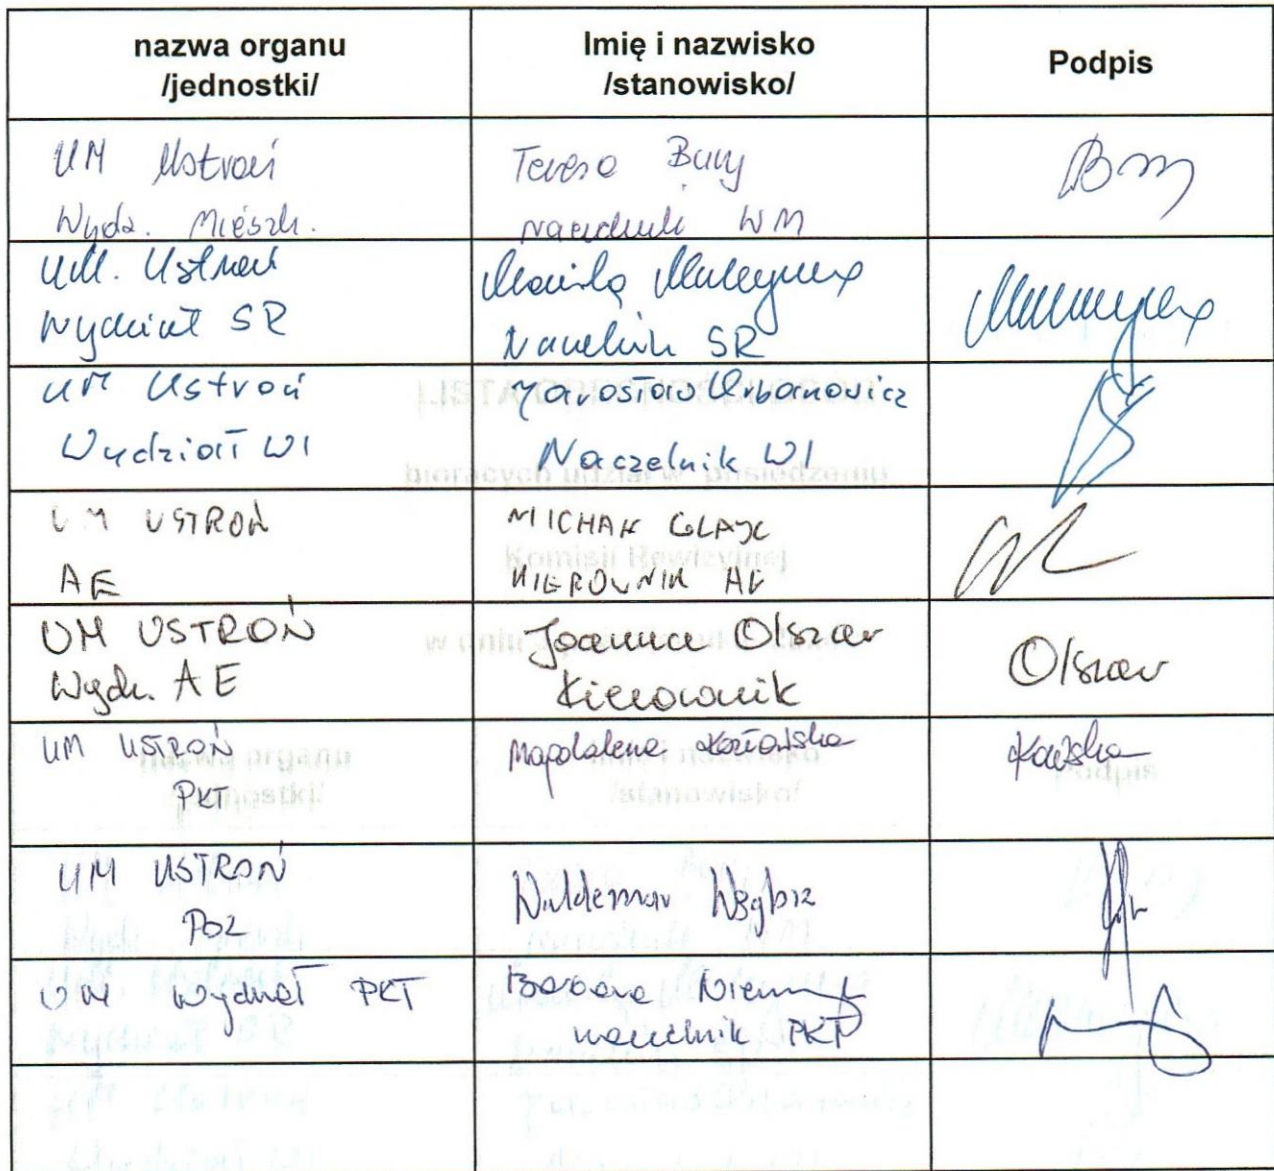 nazwa organu
/jednostki/
Imię i nazwisko
/stanowisko/
Podpis
UM Ustroń
Wydz. Mieszk.
Teresa Bury
naczelnik WM
UM. Ustroń
Wydział SR
Naczelnik SR
UM Ustroń
Wydział WI
Jarosław Urbanowicz
Naczelnik WI
UM USTROŃ
AE
MICHAŁ GLAJC
KIEROWNIK AE
UM USTROŃ
Wydz. AE
Joanna Olszar
Kierownik
Olszar
UM USTROŃ
PKT
Magdalena Kozłowska
UM USTROŃ
POZ
Waldemar
UM Wydział PKT
Barbara
naczelnik PKT